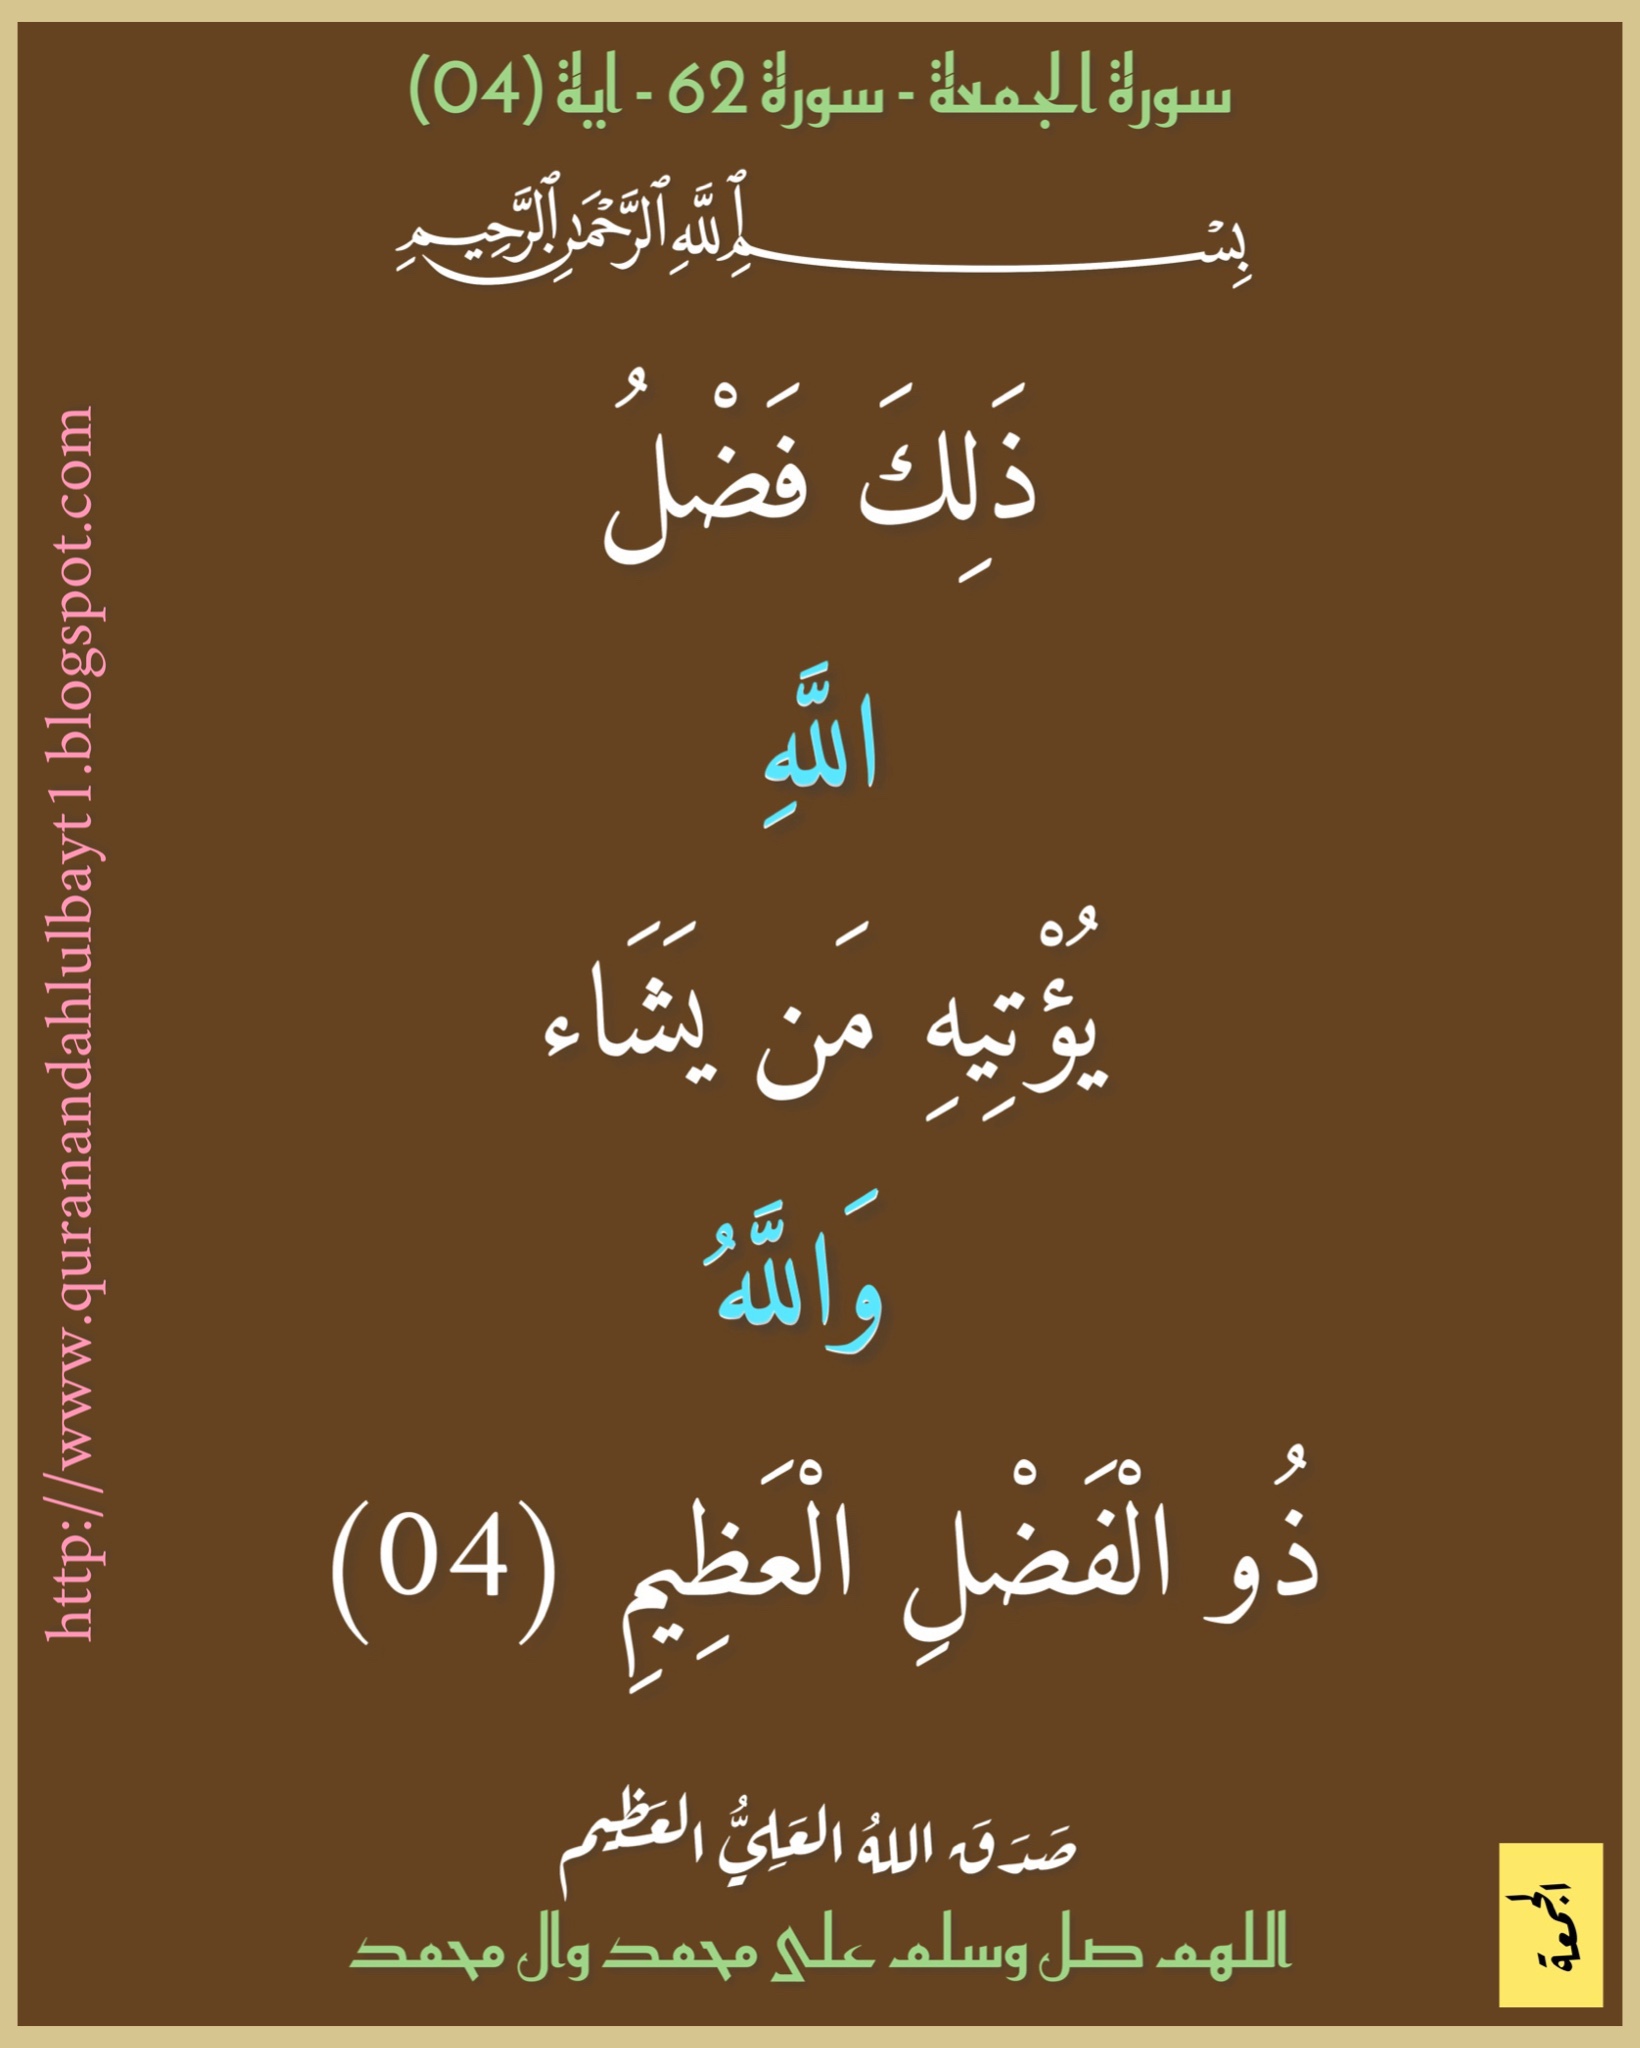 سورة الجمعة - سورة 62 - اية (04)
بِسْمِ ٱللَّهِ ٱلرَّحْمَٰنِ ٱلرَّحِيمِ
ذَلِكَ فَضْلُ
اللَّهِ
يُؤْتِيهِ مَن يَشَاء
وَاللَّهُ
ذُو الْفَضْلِ الْعَظِيمِ (04)
صَدَقَ اللهُ العَلِيُّ العَظِيم
اللهم صل وسلم على محمد وال محمد
http://www.quranandahlulbayt1.blogspot.com
الجمعة